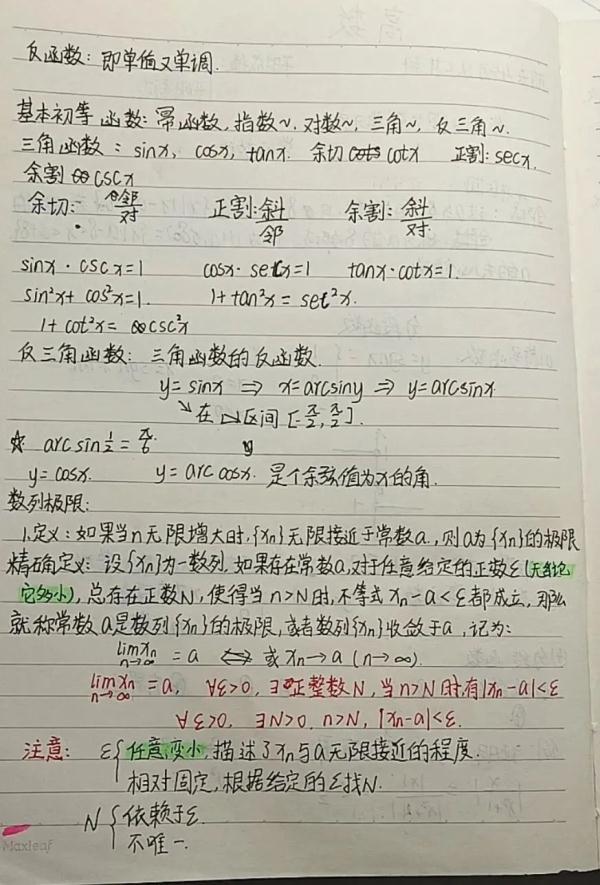 反函数：即单值又单调.
基本初等函数：幂函数，指数~，对数~，三角~，反三角~.
三角函数：sinx，cosx，tanx. 余切 cotx 正割：secx.
余割 cscx
余切：邻/对 正割：斜/邻 余割：斜/对
sinx · cscx=1 cosx · secx=1 tanx · cotx=1.
sin²x+cos²x=1. 1+tan²x=sec²x.
1+cot²x=csc²x
反三角函数：三角函数的反函数.
y=sinx ⇒ x=arcsiny ⇒ y=arcsinx
↘在 区间 [-π/2, π/2].
☆ arcsin 1/2 = π/6.
y=cosx. y=arccosx. 是个余弦值为x的角.
数列极限：
1.定义：如果当n无限增大时，{xn}无限接近于常数a，则a为{xn}的极限
精确定义：设{xn}为一数列，如果存在常数a，对于任意给定的正数ε(无论它
它多小)，总存在正数N，使得当n>N时，不等式xn-a<ε都成立，那么
就称常数a是数列{xn}的极限，或者数列{xn}收敛于a，记为：
lim xn n→∞ = a ⇔ 或 xn→a (n→∞).
lim xn n→∞ = a, ∀ε>0, ∃正整数N, 当n>N时，有|xn-a|<ε
∀ε>0, ∃N>0, n>N, |xn-a|<ε.
注意： ε{ 任意变小，描述了xn与a无限接近的程度.
相对固定，根据给定的ε找N.
N{ 依赖于ε.
不唯一.
Maxleaf